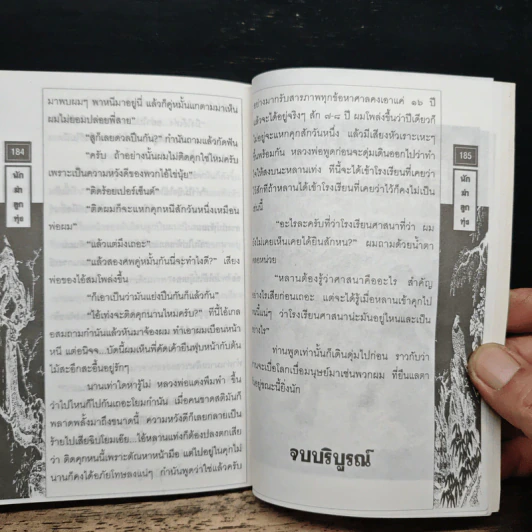 184
นัก
ฆ่า
ลูก
ทุ่ง
มาพบผมๆ พาหนีมาอยู่นี่ แล้วก็คู่หมั้นแกตามมาเห็น
ผมไม่ยอมปล่อยพี่สาย”
“สู้กันเลยดวลปืนกัน?” กำนันถามแล้วกัดฟัน
“ครับ ถ้าอย่างนั้นผมไม่ติดคุกใช่ไหมครับ
เพราะเป็นความหวังดีของพวกไอ้ไข่นุ้ย”
“ติดร้อยเปอร์เซ็นต์”
“ติดผมก็จะแหกคุกหนีสักวันหนึ่งเหมือน
พ่อผม”
“แล้วแต่มึงเถอะ”
“แล้วสองศพคู่หมั้นกันนี่จะทำไงดี?” เสียง
พ่อของไอ้สมโพล่งขึ้น
“ก็เอาเป็นว่ามันแย่งปืนกันก็แล้วกัน”
“ไอ้เท่งจะติดคุกนานไหมครับ?” ทีนี้ไอ้เกล
อสมถามกำนันแล้วหันมาจ้องผม ทำเอาผมเบือนหน้า
หนี แต่อนิจจ...บัดนี้ผมเห็นพี่คัดเค้ายืนฟุบหน้ากับต้น
ไม้สะอึกสะอื้นอยู่รักๆ
นานเท่าใดหารู้ไม่ หลวงพ่อแดงพึมพำ ขึ้น
ว่าไปไหนก็ไปกันเถอะโยมกำนัน เมื่อคนขาดสติมันก็
พลาดพลั้งมาถึงขนาดนี้ ความหวังดีก็เลยกลายเป็น
ร้ายไปเสียฉิบโยมเอ้ย...ไอ้หลานแท่งก็ต้องปลงตกเสีย
ว่า ติดคุกหนนี้เพราะตัณหาหน้ามืด แต่ไปอยู่ในคุกไม่
นานก็คงได้อภัยโทษลงแน่ๆ กำนันพูดว่าใช่แล้วครับ
อย่างมากรับสารภาพทุกข้อหาศาลคงเอาแค่ ๑๖ ปี
แล้วจะได้อยู่จริงๆ สัก ๗-๘ ปี ผมโพล่งขึ้นว่าปีเดียวก็
ไม่อยู่จะแหกคุกสักวันหนึ่ง แล้วมีเสียงหัวเราะเหะๆ
ขึ้นพร้อมกัน หลวงพ่อพูดก่อนจะดุ่มเดินออกไปว่าทำ
ใจให้สงบนะหลานเท่ง ทีนี้จะได้เข้าโรงเรียนที่เคยว่า
ไว้สักทีถ้าหลานได้เข้าโรงเรียนที่เคยว่าไว้ก็คงไม่เป็น
อย่างนี้
“อะไรละครับที่ว่าโรงเรียนศาสนาที่ว่า ผม
ยังไม่เคยเห็นเคยได้ยินสักหน?” ผมถามด้วยน้ำตา
คลอหน่วย
“หลานต้องรู้ว่าศาสนาคืออะไร สำคัญ
อย่างไรเสียก่อนเถอะ แต่จะได้รู้เมื่อหลานเข้าคุกไป
หนนี้แน่ๆ ว่าโรงเรียนศาสนาน่ะมันอยู่ไหนและเป็น
อย่างไร”
ท่านพูดเท่านั้นก็เดินดุ่มไปก่อน ราวกับว่า
ท่านจะเบื่อโลกเบื่อมนุษย์มาเช่นพวกผม ที่ยืนแลตา
กันอยู่ขณะนี้ยิ่งนัก
จบบริบูรณ์
185
นัก
ฆ่า
ลูก
ทุ่ง